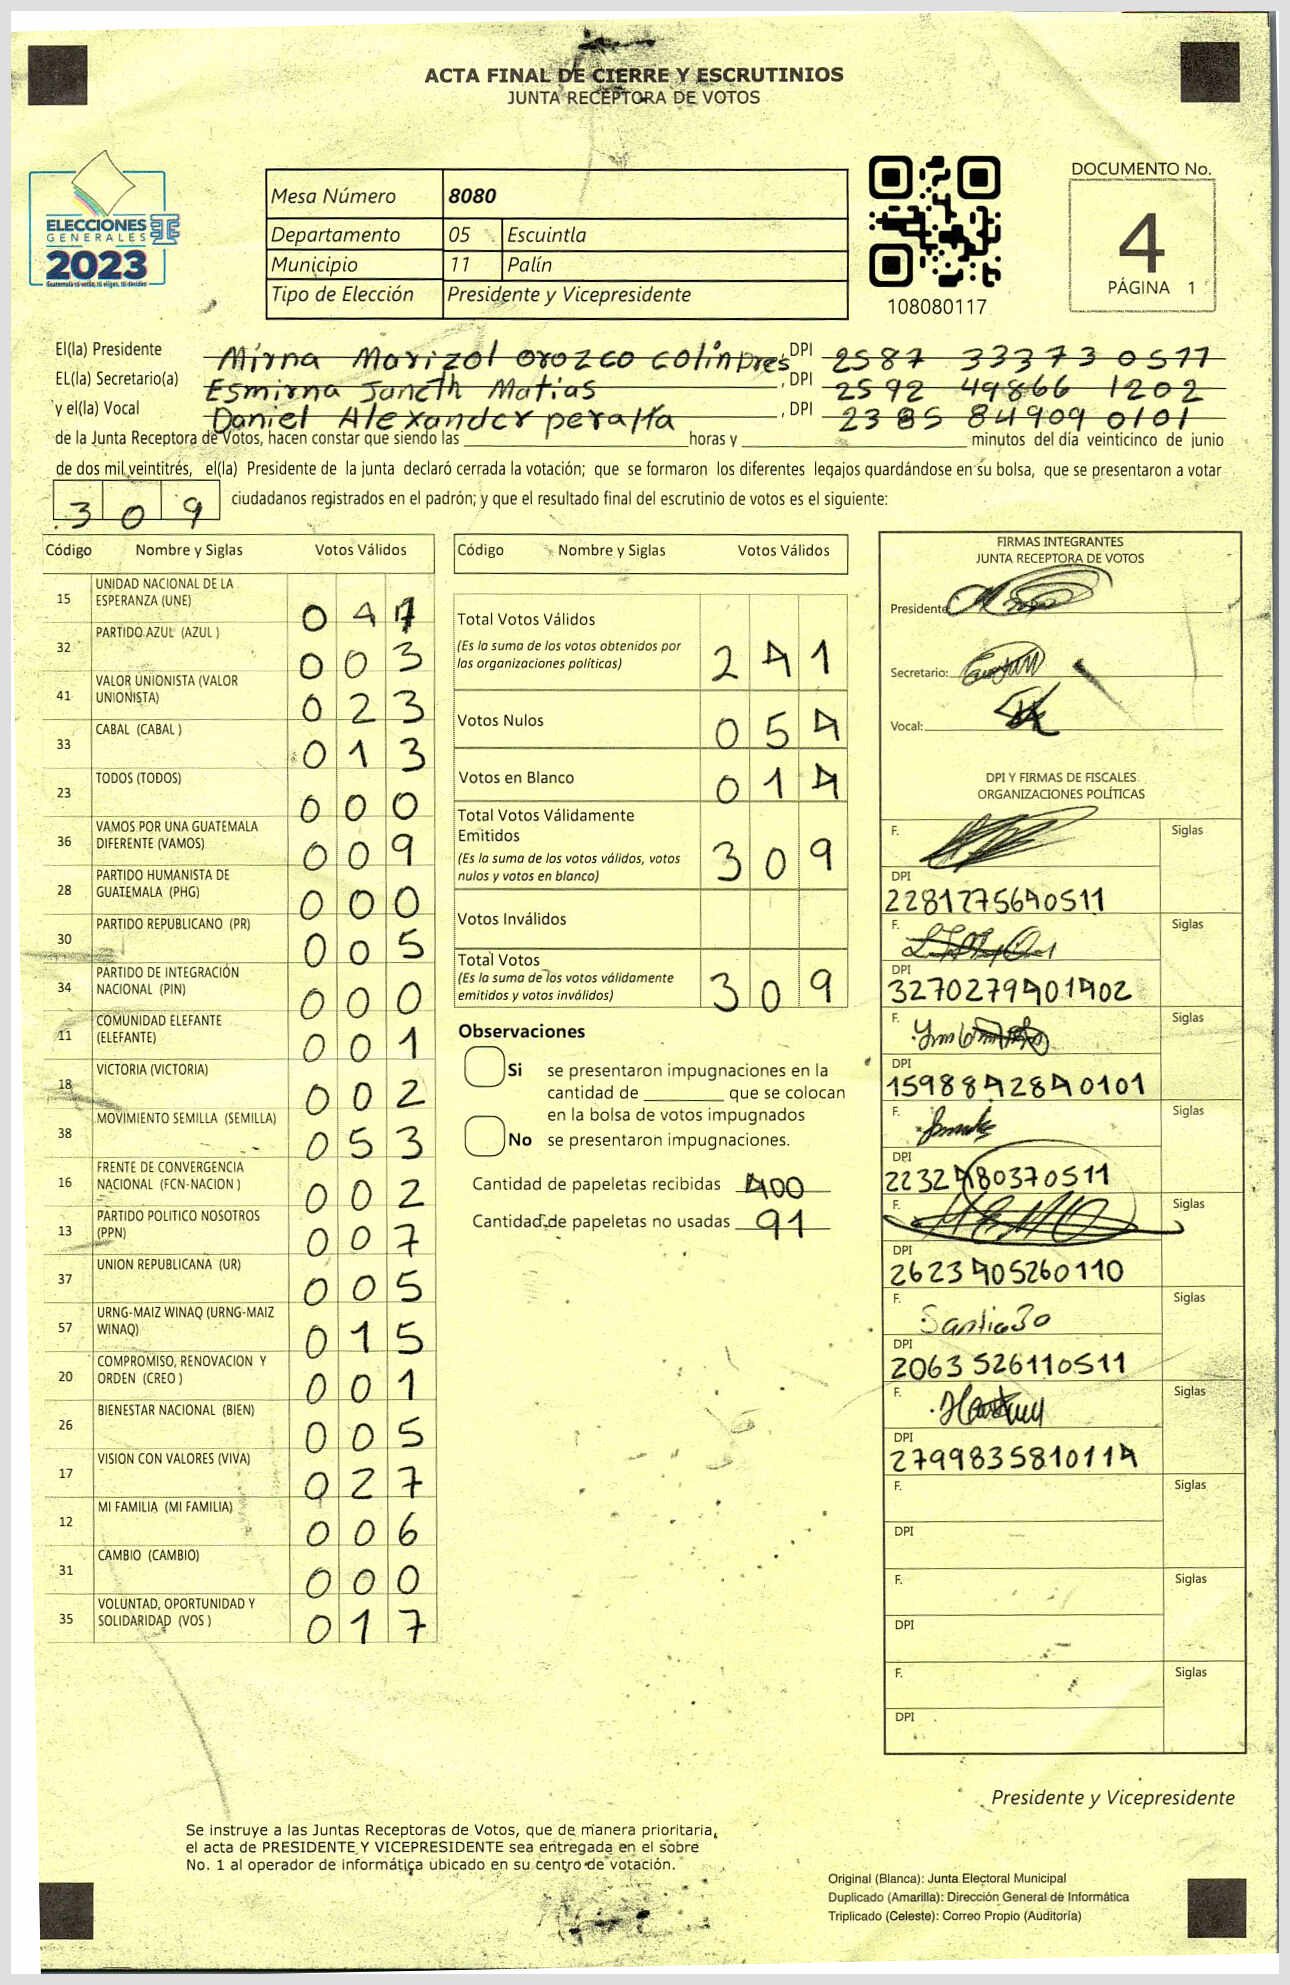 ACTA FINAL DE CIERRE Y ESCRUTINIOS
JUNTA RECEPTORA DE VOTOS
ELECCIONES
GENERALES
2023
Guatemala tú votás, tú eliges, tú decides
Mesa Número 8080
Departamento 05 Escuintla
Municipio 11 Palín
Tipo de Elección Presidente y Vicepresidente
108080117
DOCUMENTO No.
4
PÁGINA 1
El(la) Presidente Mirna Marizol Orozco Colinpres, DPI 2587 33373 0511
EL(la) Secretario(a) Esmirna Janeth Matias, DPI 2592 49866 1202
y el(la) Vocal Daniel Alexander peralta, DPI 2385 84909 0101
de la Junta Receptora de Votos, hacen constar que siendo las ____ horas y ____ minutos del día veinticinco de junio
de dos mil veintitrés, el(la) Presidente de la junta declaró cerrada la votación; que se formaron los diferentes legajos guardándose en su bolsa, que se presentaron a votar
309 ciudadanos registrados en el padrón; y que el resultado final del escrutinio de votos es el siguiente:
Código Nombre y Siglas Votos Válidos
15 UNIDAD NACIONAL DE LA ESPERANZA (UNE) 0 4
32 PARTIDO AZUL (AZUL ) 0 0 3
41 VALOR UNIONISTA (VALOR UNIONISTA) 0 2 3
33 CABAL (CABAL ) 0 1 3
23 TODOS (TODOS) 0 0 0
36 VAMOS POR UNA GUATEMALA DIFERENTE (VAMOS) 0 0 9
28 PARTIDO HUMANISTA DE GUATEMALA (PHG) 0 0 0
30 PARTIDO REPUBLICANO (PR) 0 0 5
34 PARTIDO DE INTEGRACIÓN NACIONAL (PIN) 0 0 0
11 COMUNIDAD ELEFANTE (ELEFANTE) 0 0 1
18 VICTORIA (VICTORIA) 0 0 2
38 MOVIMIENTO SEMILLA (SEMILLA) 0 5 3
16 FRENTE DE CONVERGENCIA NACIONAL (FCN-NACION ) 0 0 2
13 PARTIDO POLITICO NOSOTROS (PPN) 0 0 7
37 UNION REPUBLICANA (UR) 0 0 5
57 URNG-MAIZ WINAQ (URNG-MAIZ WINAQ) 0 1 5
20 COMPROMISO, RENOVACION Y ORDEN (CREO ) 0 0 1
26 BIENESTAR NACIONAL (BIEN) 0 0 5
17 VISION CON VALORES (VIVA) 0 2 7
12 MI FAMILIA (MI FAMILIA) 0 0 6
31 CAMBIO (CAMBIO) 0 0 0
35 VOLUNTAD, OPORTUNIDAD Y SOLIDARIDAD (VOS ) 0 1 7
Código Nombre y Siglas Votos Válidos
Total Votos Válidos
(Es la suma de los votos obtenidos por
las organizaciones políticas) 2 4 1
Votos Nulos 0 5 4
Votos en Blanco 0 1 4
Total Votos Válidamente
Emitidos
(Es la suma de los votos válidos, votos
nulos y votos en blanco) 3 0 9
Votos Inválidos
Total Votos
(Es la suma de los votos válidamente
emitidos y votos inválidos) 3 0 9
Observaciones
Si se presentaron impugnaciones en la
cantidad de ____ que se colocan
en la bolsa de votos impugnados
No se presentaron impugnaciones.
Cantidad de papeletas recibidas 400
Cantidad de papeletas no usadas 91
FIRMAS INTEGRANTES
JUNTA RECEPTORA DE VOTOS
Presidente
Secretario:
Vocal:
DPI Y FIRMAS DE FISCALES
ORGANIZACIONES POLÍTICAS
F. Siglas
DPI
2281775640511
F. Siglas
DPI
3270279401402
F. Siglas
DPI
1598842840101
F. Siglas
DPI
2232480370511
F. Siglas
DPI
2623405260110
F. Santiago Siglas
DPI
2063526110511
F. Siglas
DPI
2799835810114
F. Siglas
DPI
F. Siglas
DPI
F. Siglas
DPI
Presidente y Vicepresidente
Se instruye a las Juntas Receptoras de Votos, que de manera prioritaria,
el acta de PRESIDENTE Y VICEPRESIDENTE sea entregada en el sobre
No. 1 al operador de informática ubicado en su centro de votación.
Original (Blanca): Junta Electoral Municipal
Duplicado (Amarilla): Dirección General de Informática
Triplicado (Celeste): Correo Propio (Auditoría)